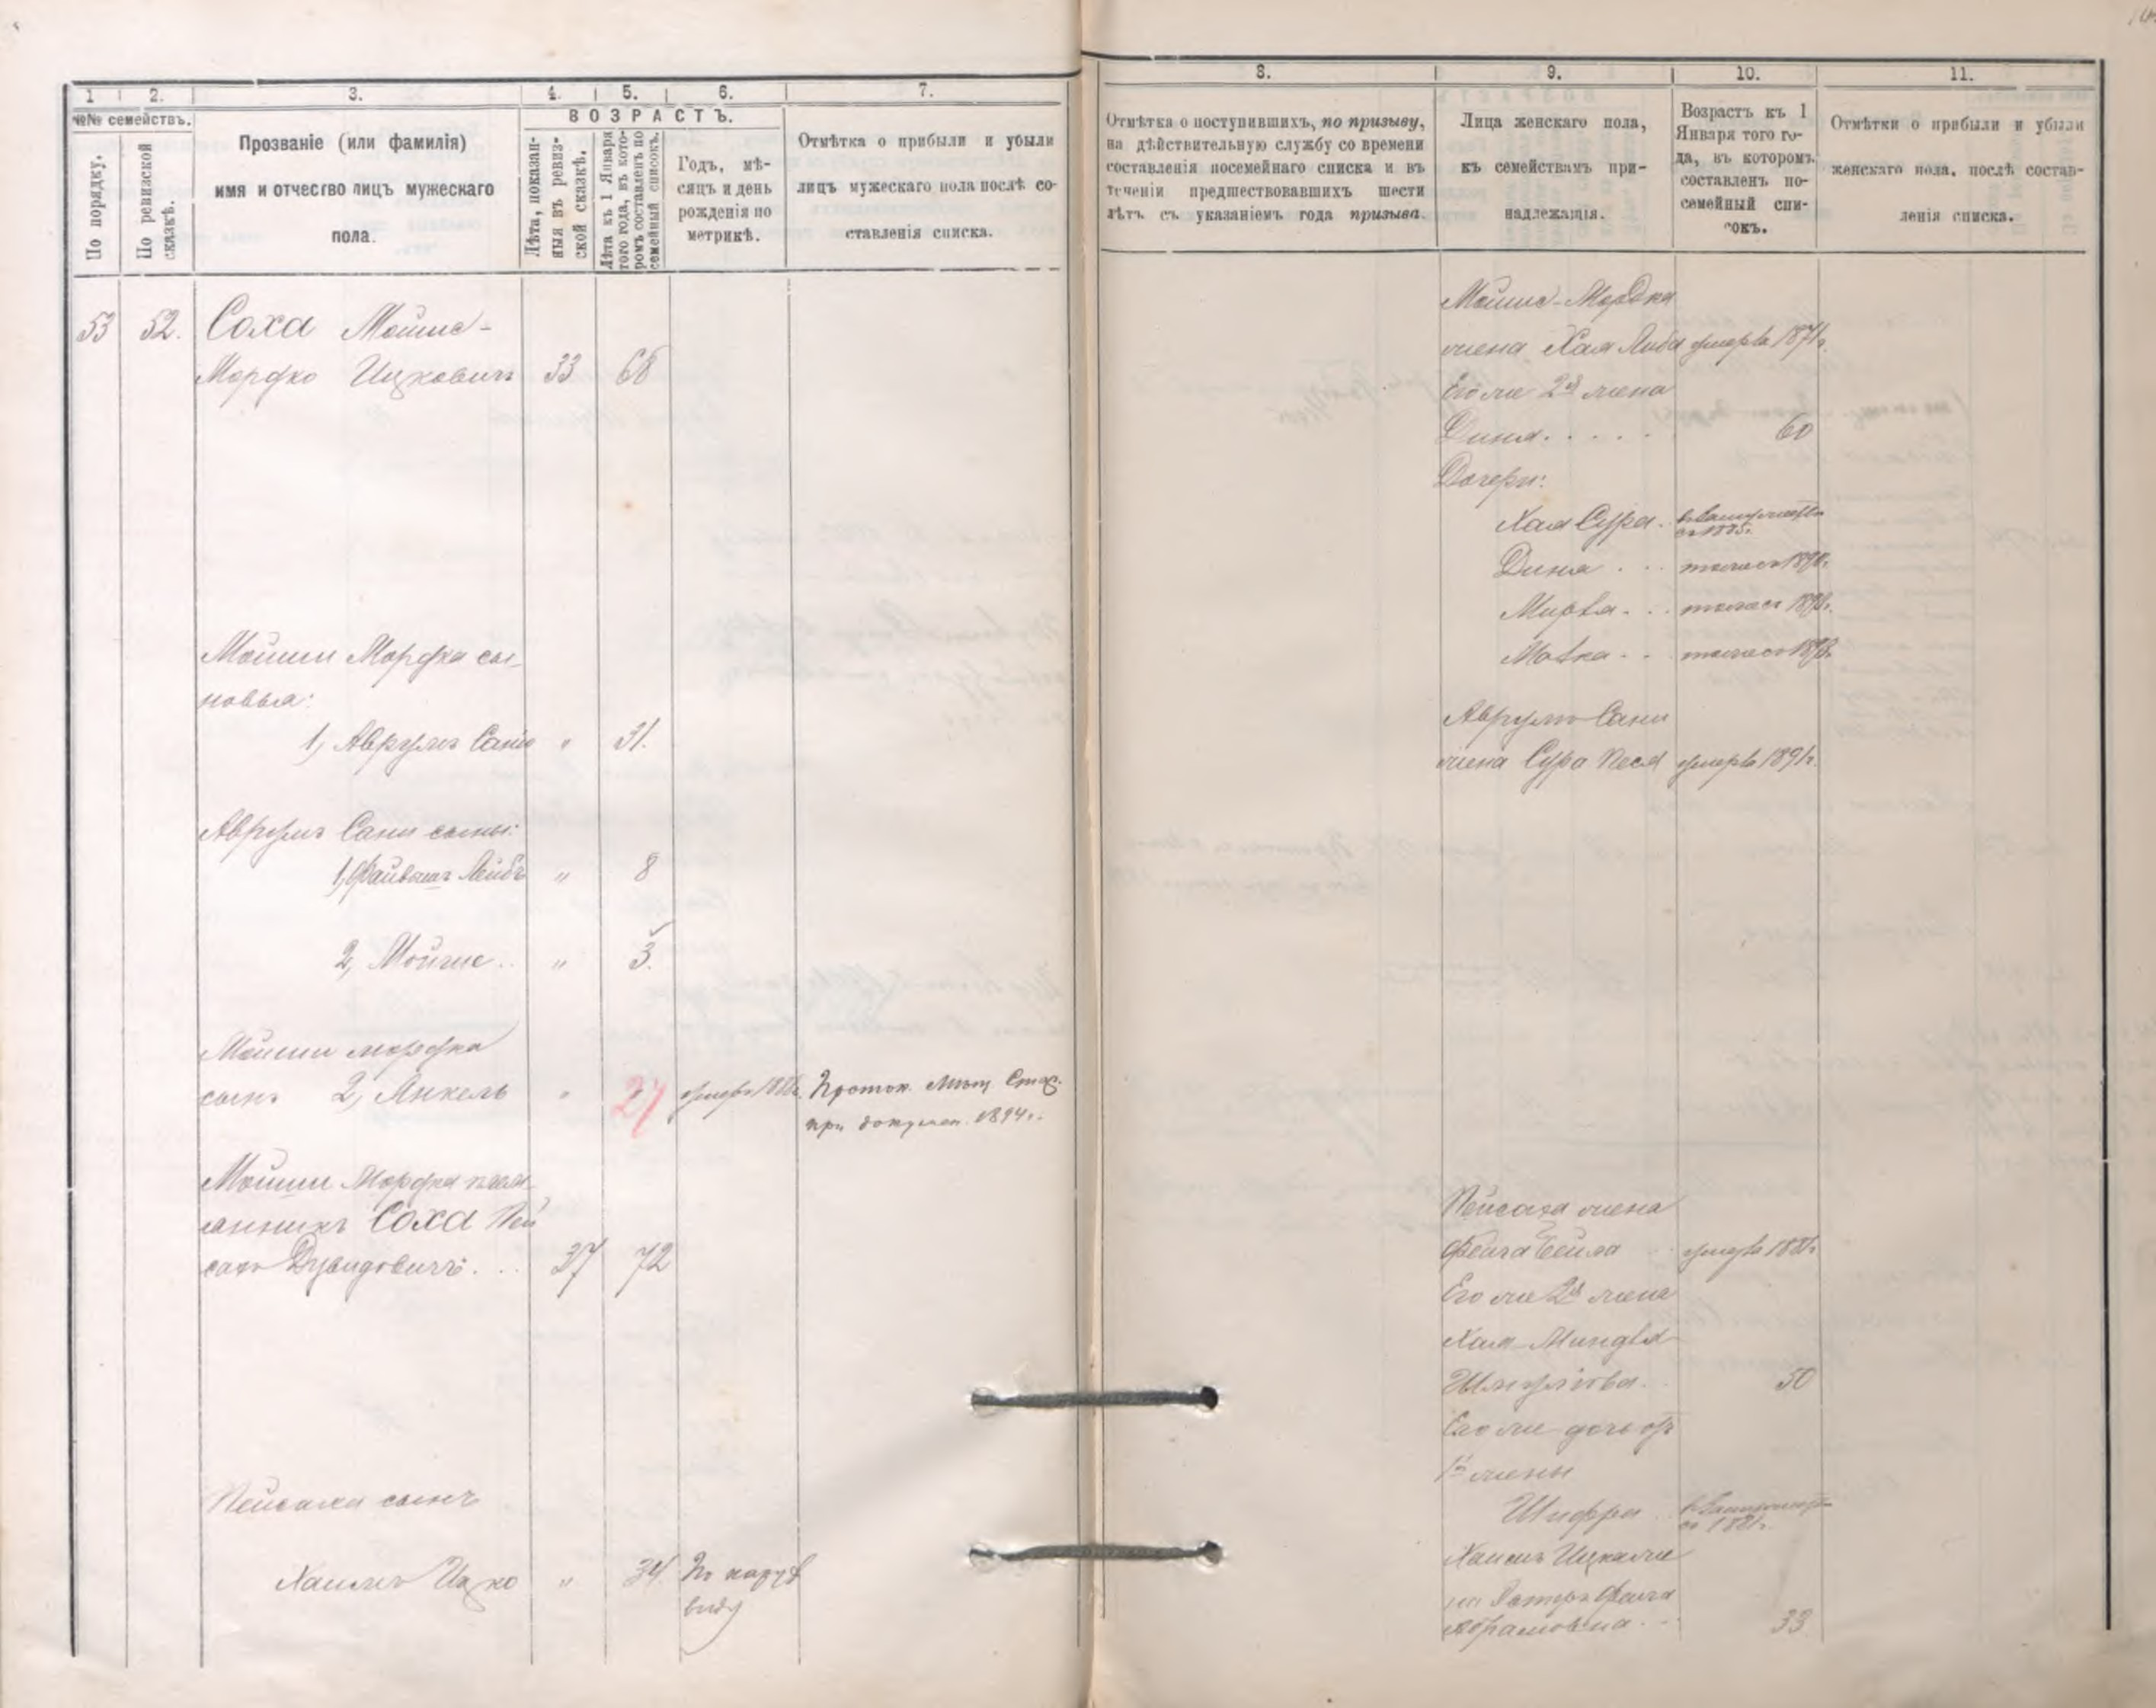 1
2.
3.
4.
5.
6.
7.
№№ семействъ.
По порядку.
По ревизской сказкѣ.
Прозваніе (или фамилія)
имя и отчество лицъ мужескаго
пола.
ВОЗРАСТЪ.
Лѣта, показан-
ныя въ ревиз-
ской сказкѣ.
Лѣта къ 1 Января
того года, въ кото-
ромъ составленъ по
семейный списокъ.
Годъ, мѣ-
сяцъ и день
рожденія по
метрикѣ.
Отмѣтка о прибыли и убыли
лицъ мужескаго пола послѣ со-
ставленія списка.
53 52. Соха Мойше-
Мордко Ицковичъ 33 68
Мойши Мордка сы-
новья:
1, Аврумъ Сани " 31.
Аврумъ Сани сыны:
1, Файвишъ Лейбъ " 8
2, Мойше.. " 3.
Мойши Мордка
сынъ 2, Янкель " 27 Проток. Мѣщ. Стар.
при докумен. 1894 г.
Мойши Мордка плем-
янникъ Соха Пей
сахъ Дувидовичъ... 37 72
Пейсаха сынъ
Хаимъ Ицко " 34 По наруж
виду
8.
9.
10.
11.
Отмѣтка о поступившихъ, по призыву,
на дѣйствительную службу со времени
составленія посемейнаго списка и въ
теченіи предшествовавшихъ шести
лѣтъ съ указаніемъ года призыва.
Лица женскаго пола,
къ семействамъ при-
надлежащія.
Возрастъ къ 1
Января того го-
да, въ которомъ
составленъ по-
семейный спи-
сокъ.
Отмѣтки о прибыли и убыли
женскаго пола, послѣ состав-
ленія списка.
Мойше-Мордка
жена Хая Либа умерла 1871 г.
Его же 2я жена
Дина..... 60
Дочери:
Хая Сура. въ замужествѣ
съ 1885 г.
Дина... тоже съ
Мирля... тоже съ
Матка.. тоже съ
Аврумъ Сани
жена Сура Песя умерла 1891 г.
Пейсаха жена
Фейга Бейла умерла
Его же 2я жена
Хая-Миндля
50
Его же дочь отъ
1й жены
Шифра въ замужествѣ
съ
Хаимъ Ицка же
на Фейга
Абрамовна.. 33